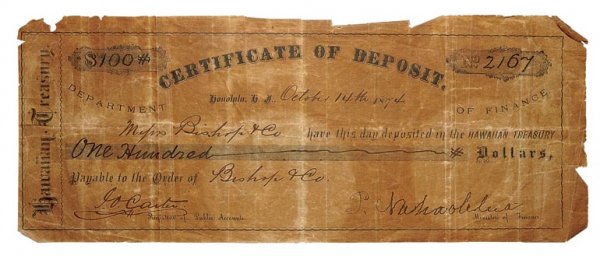 Hawaiian Treasury
$100#
CERTIFICATE OF DEPOSIT.
No 2167
DEPARTMENT
OF FINANCE
Honolulu, H. I. October 14th 1874
Messrs Bishop & Co have this day deposited in the HAWAIIAN TREASURY
One Hundred Dollars,
Payable to the Order of Bishop & Co.
Registrar of Public Accounts
Minister of Finance